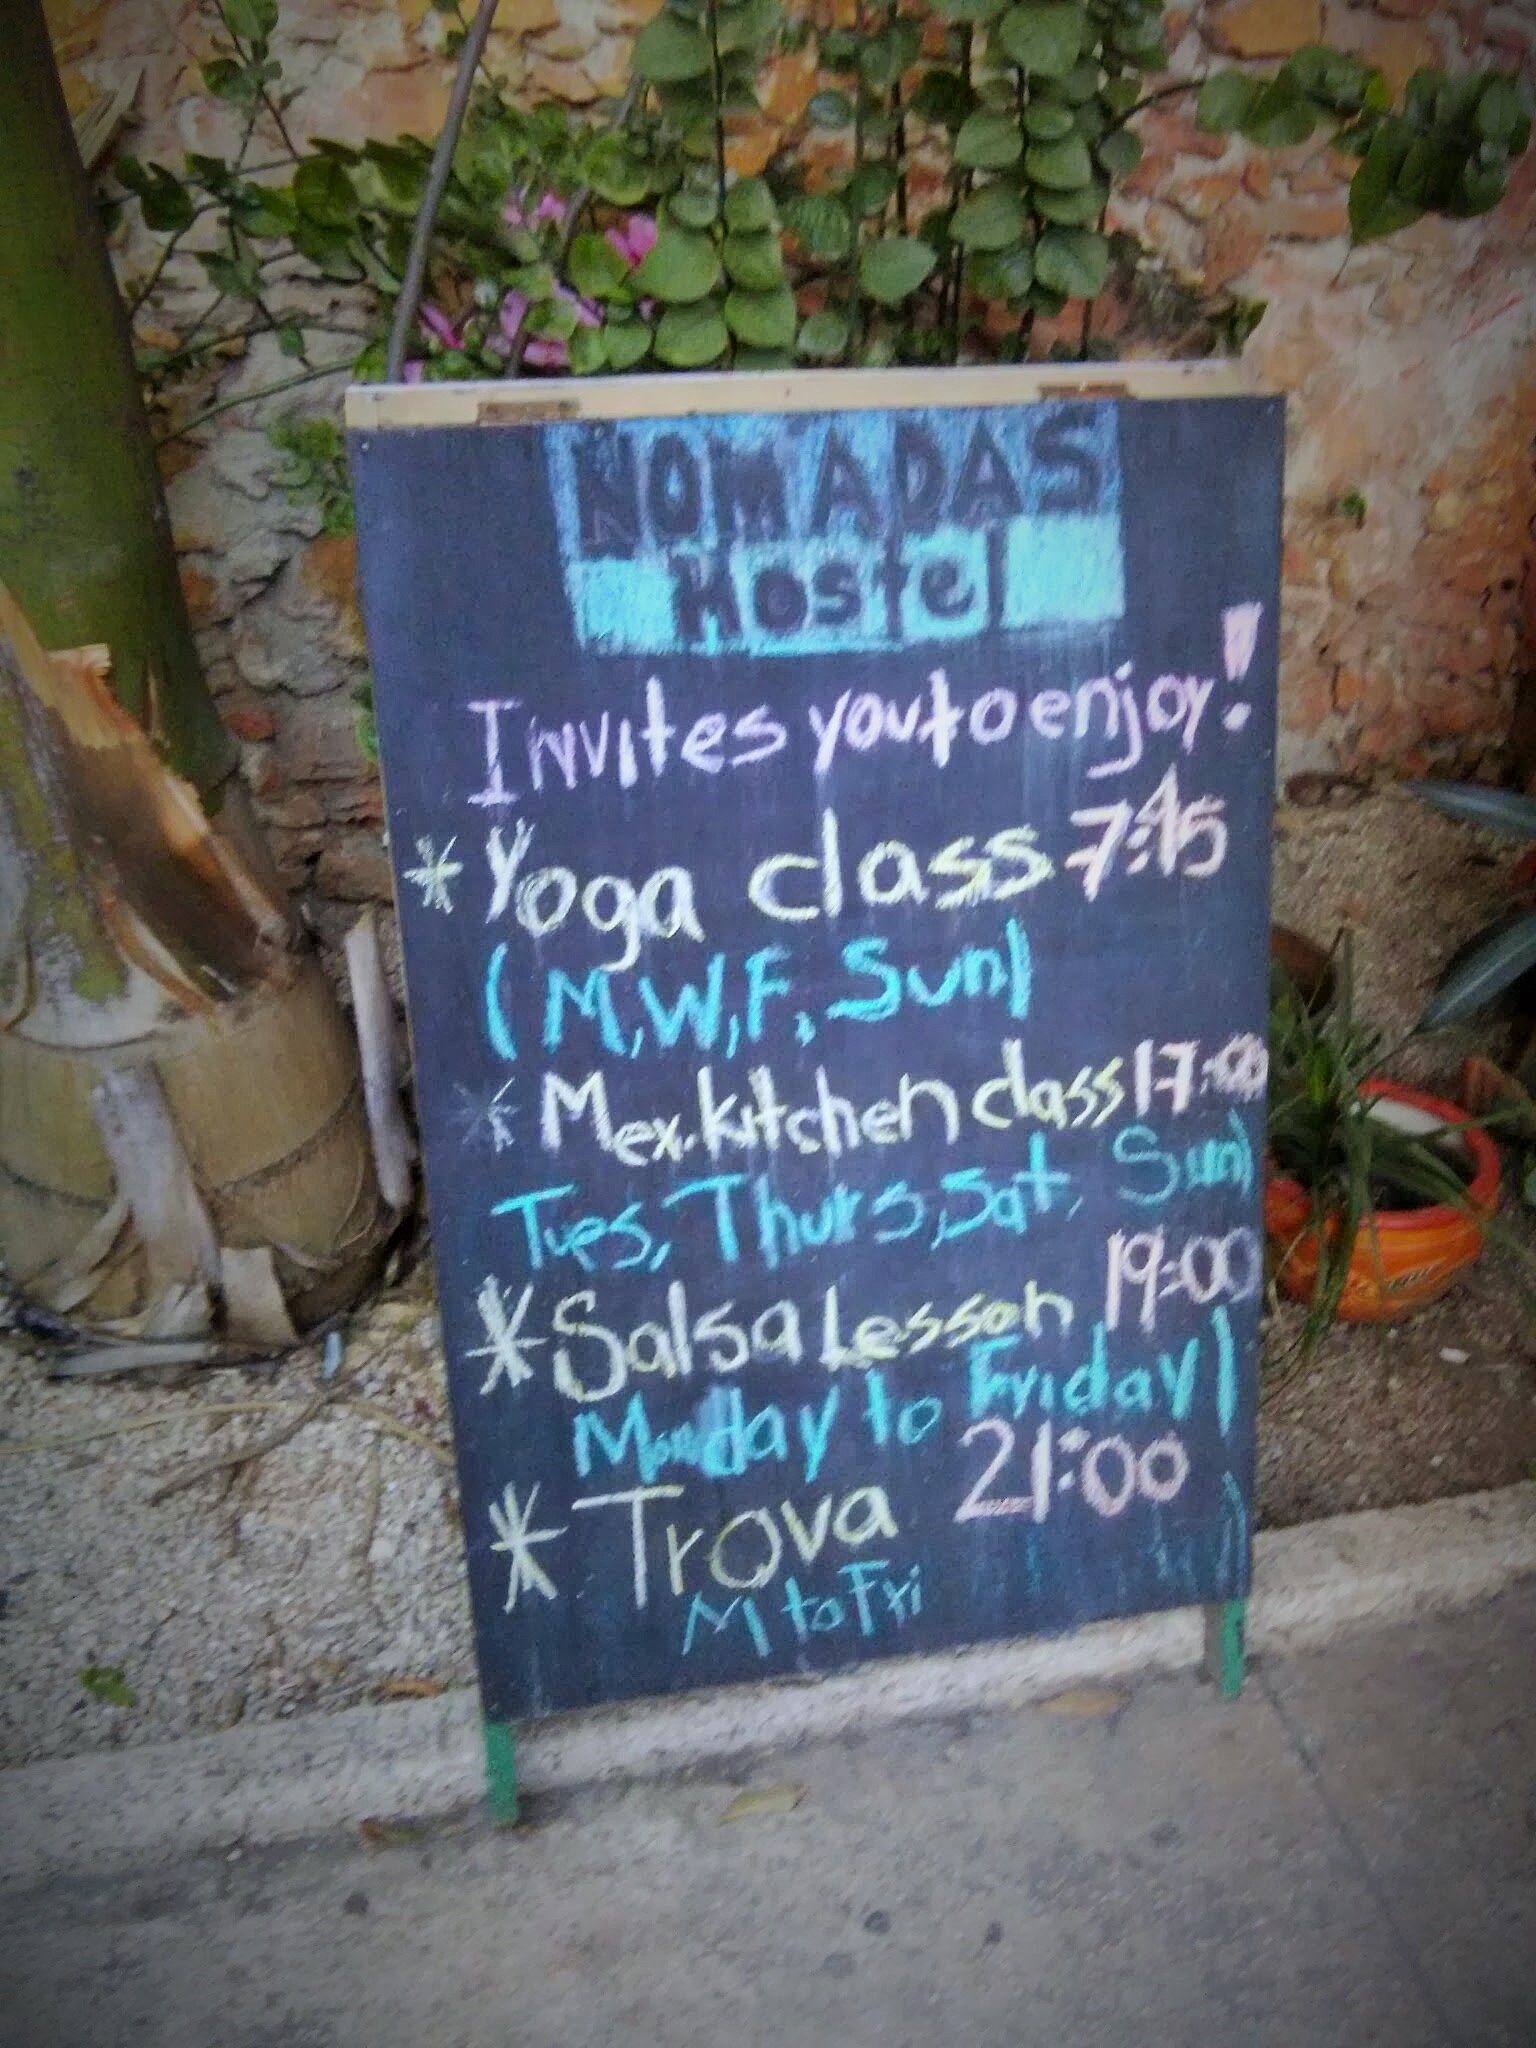 NOMADAS
Hostel
Invites you to enjoy!
* Yoga class 7:45
(M,W,F, Sun)
* Mex.kitchen class 17:00
Tues, Thurs, Sat, Sun)
* Salsa Lesson 19:00
Monday to Friday)
* Trova 21:00
M to Fri